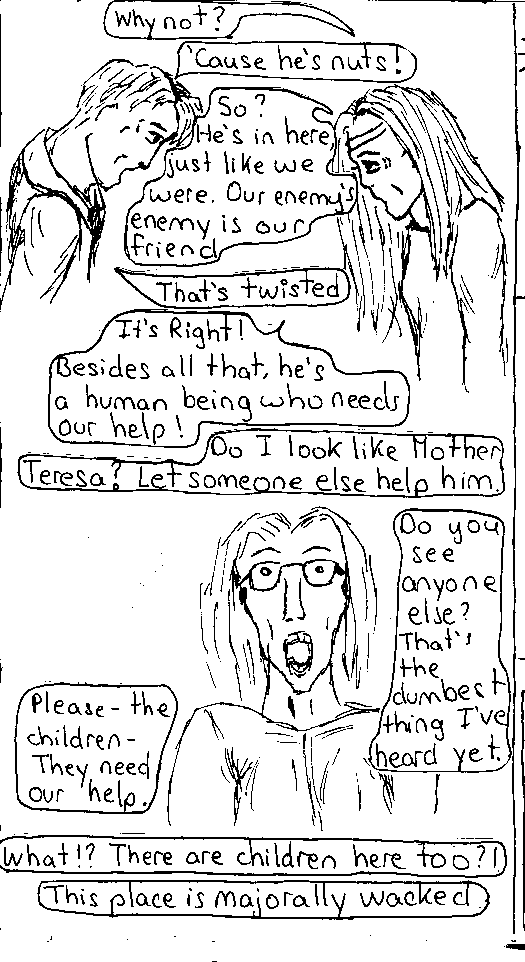 Why not?
'Cause he's nuts!
So?
He's in here
just like we
were. Our enemy's
enemy is our
friend
That's twisted
It's Right!
Besides all that, he's
a human being who needs
our help!
Do I look like Mother
Teresa? Let someone else help him.
Do you
see
anyone
else?
That's
the
dumbest
thing I've
heard yet.
Please - the
children -
They need
our help.
What!? There are children here too?!
This place is majorally wacked